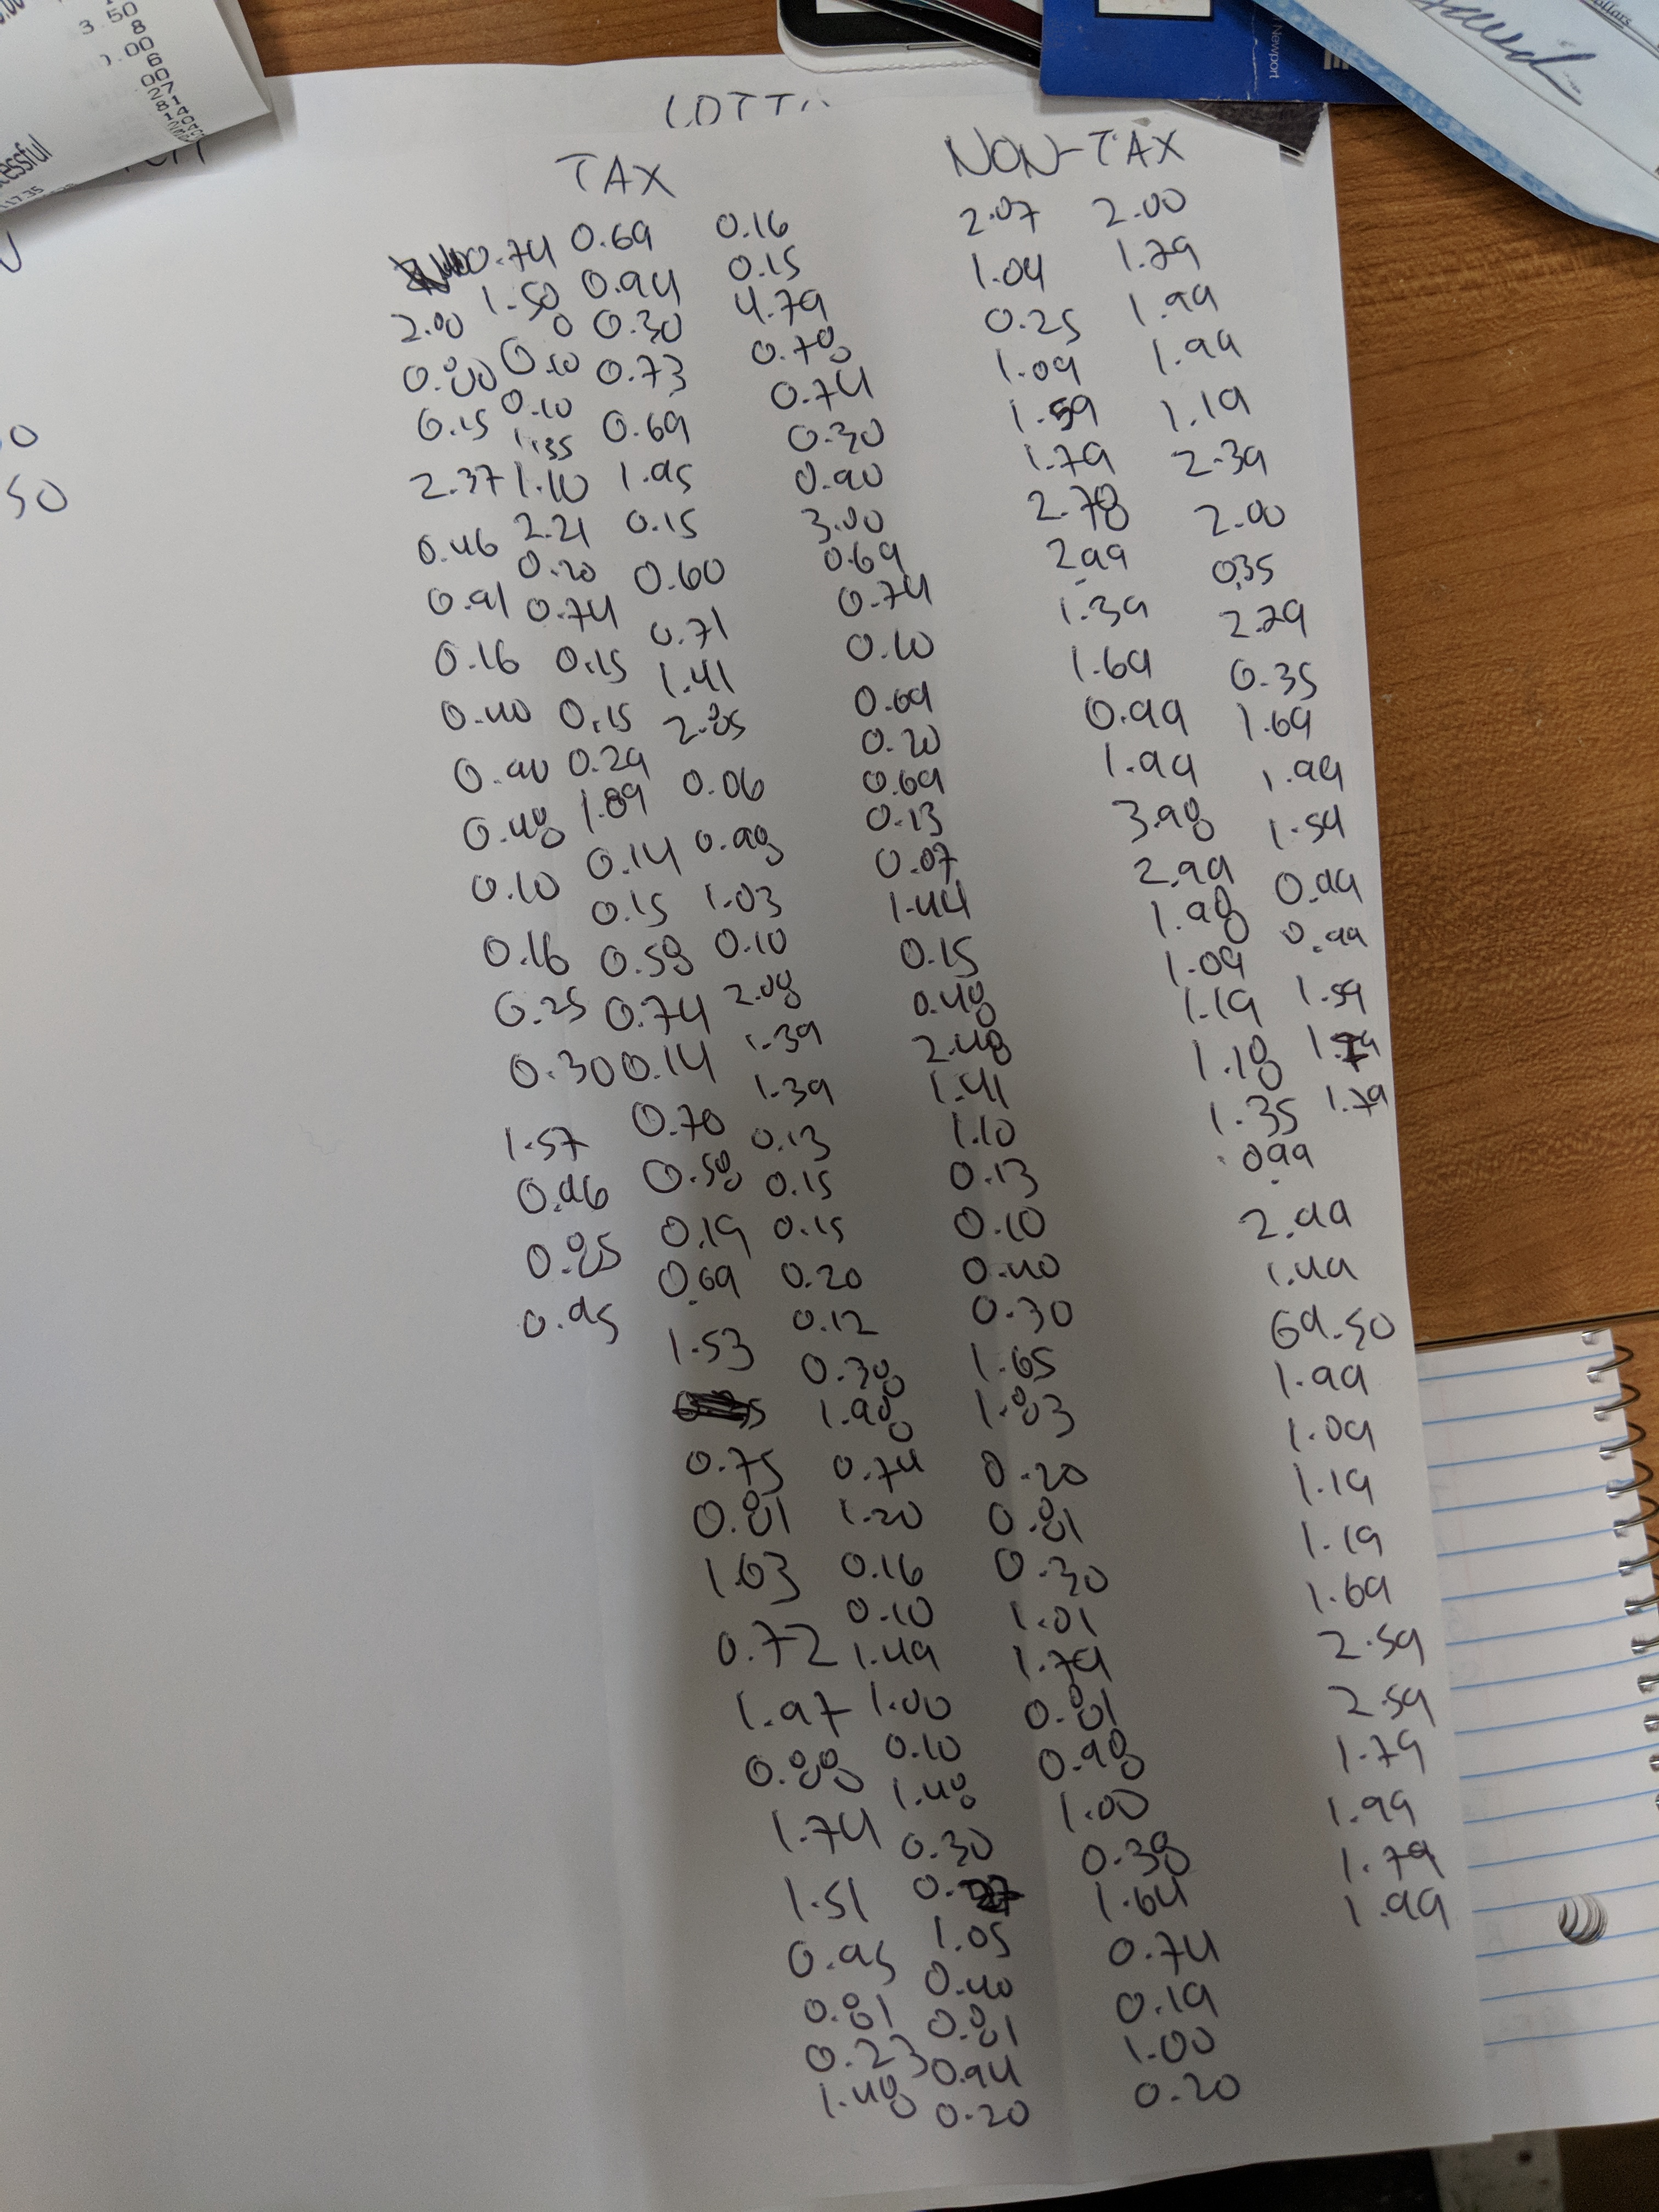 LOTT
TAX NON-TAX
0.74 0.69 0.16 2.07 2.00
2.00 1.50 0.94 0.15 1.04 1.79
0 0.30 4.79 0.25 1.99
0.80 0.10 0.73 0.78 1.09 1.99
0.15 0.10 0.69 0.74 1.59 1.19
1.35 0.30 1.79 2.39
2.37 1.10 1.95 0.90 2.78 2.00
0.46 2.21 0.15 3.00 2.99 0.35
0.20 0.60 0.69 1.39 2.29
0.91 0.74 0.71 0.74 1.69 0.35
0.16 0.15 1.41 0.10 0.99 1.69
0.40 0.15 2.85 0.69 1.99 1.99
0.90 0.29 0.06 0.20 3.98 1.59
0.48 1.89 0.98 0.69 2.99 0.99
0.10 0.14 1.03 0.13 1.98 0.99
0.15 0.10 0.07 1.09 1.59
0.16 0.58 2.08 1.44 1.19
0.25 0.74 1.39 0.15 1.18 1.79
0.30 0.14 1.39 0.48 1.35
1.57 0.70 0.13 2.48 0.99
0.96 0.58 0.15 1.41 2.99
0.85 0.19 0.15 1.10 1.49
0.95 0.69 0.20 0.13 69.50
1.53 0.12 0.10 1.99
0.38 0.40 1.09
0.75 1.98 0.30 1.19
0.81 0.74 1.65 1.19
1.03 1.20 1.83 1.69
0.72 0.16 0.20 2.59
1.97 0.10 0.81 2.59
0.88 1.49 0.30 1.79
1.74 1.00 1.01 1.99
1.51 0.10 1.79 1.79
0.95 1.48 0.81 1.99
0.81 0.30 0.98
0.23 1.05 1.00
1.48 0.40 0.38
0.81 1.64
0.94 0.74
0.20 0.19
1.00
0.20
50
Newport